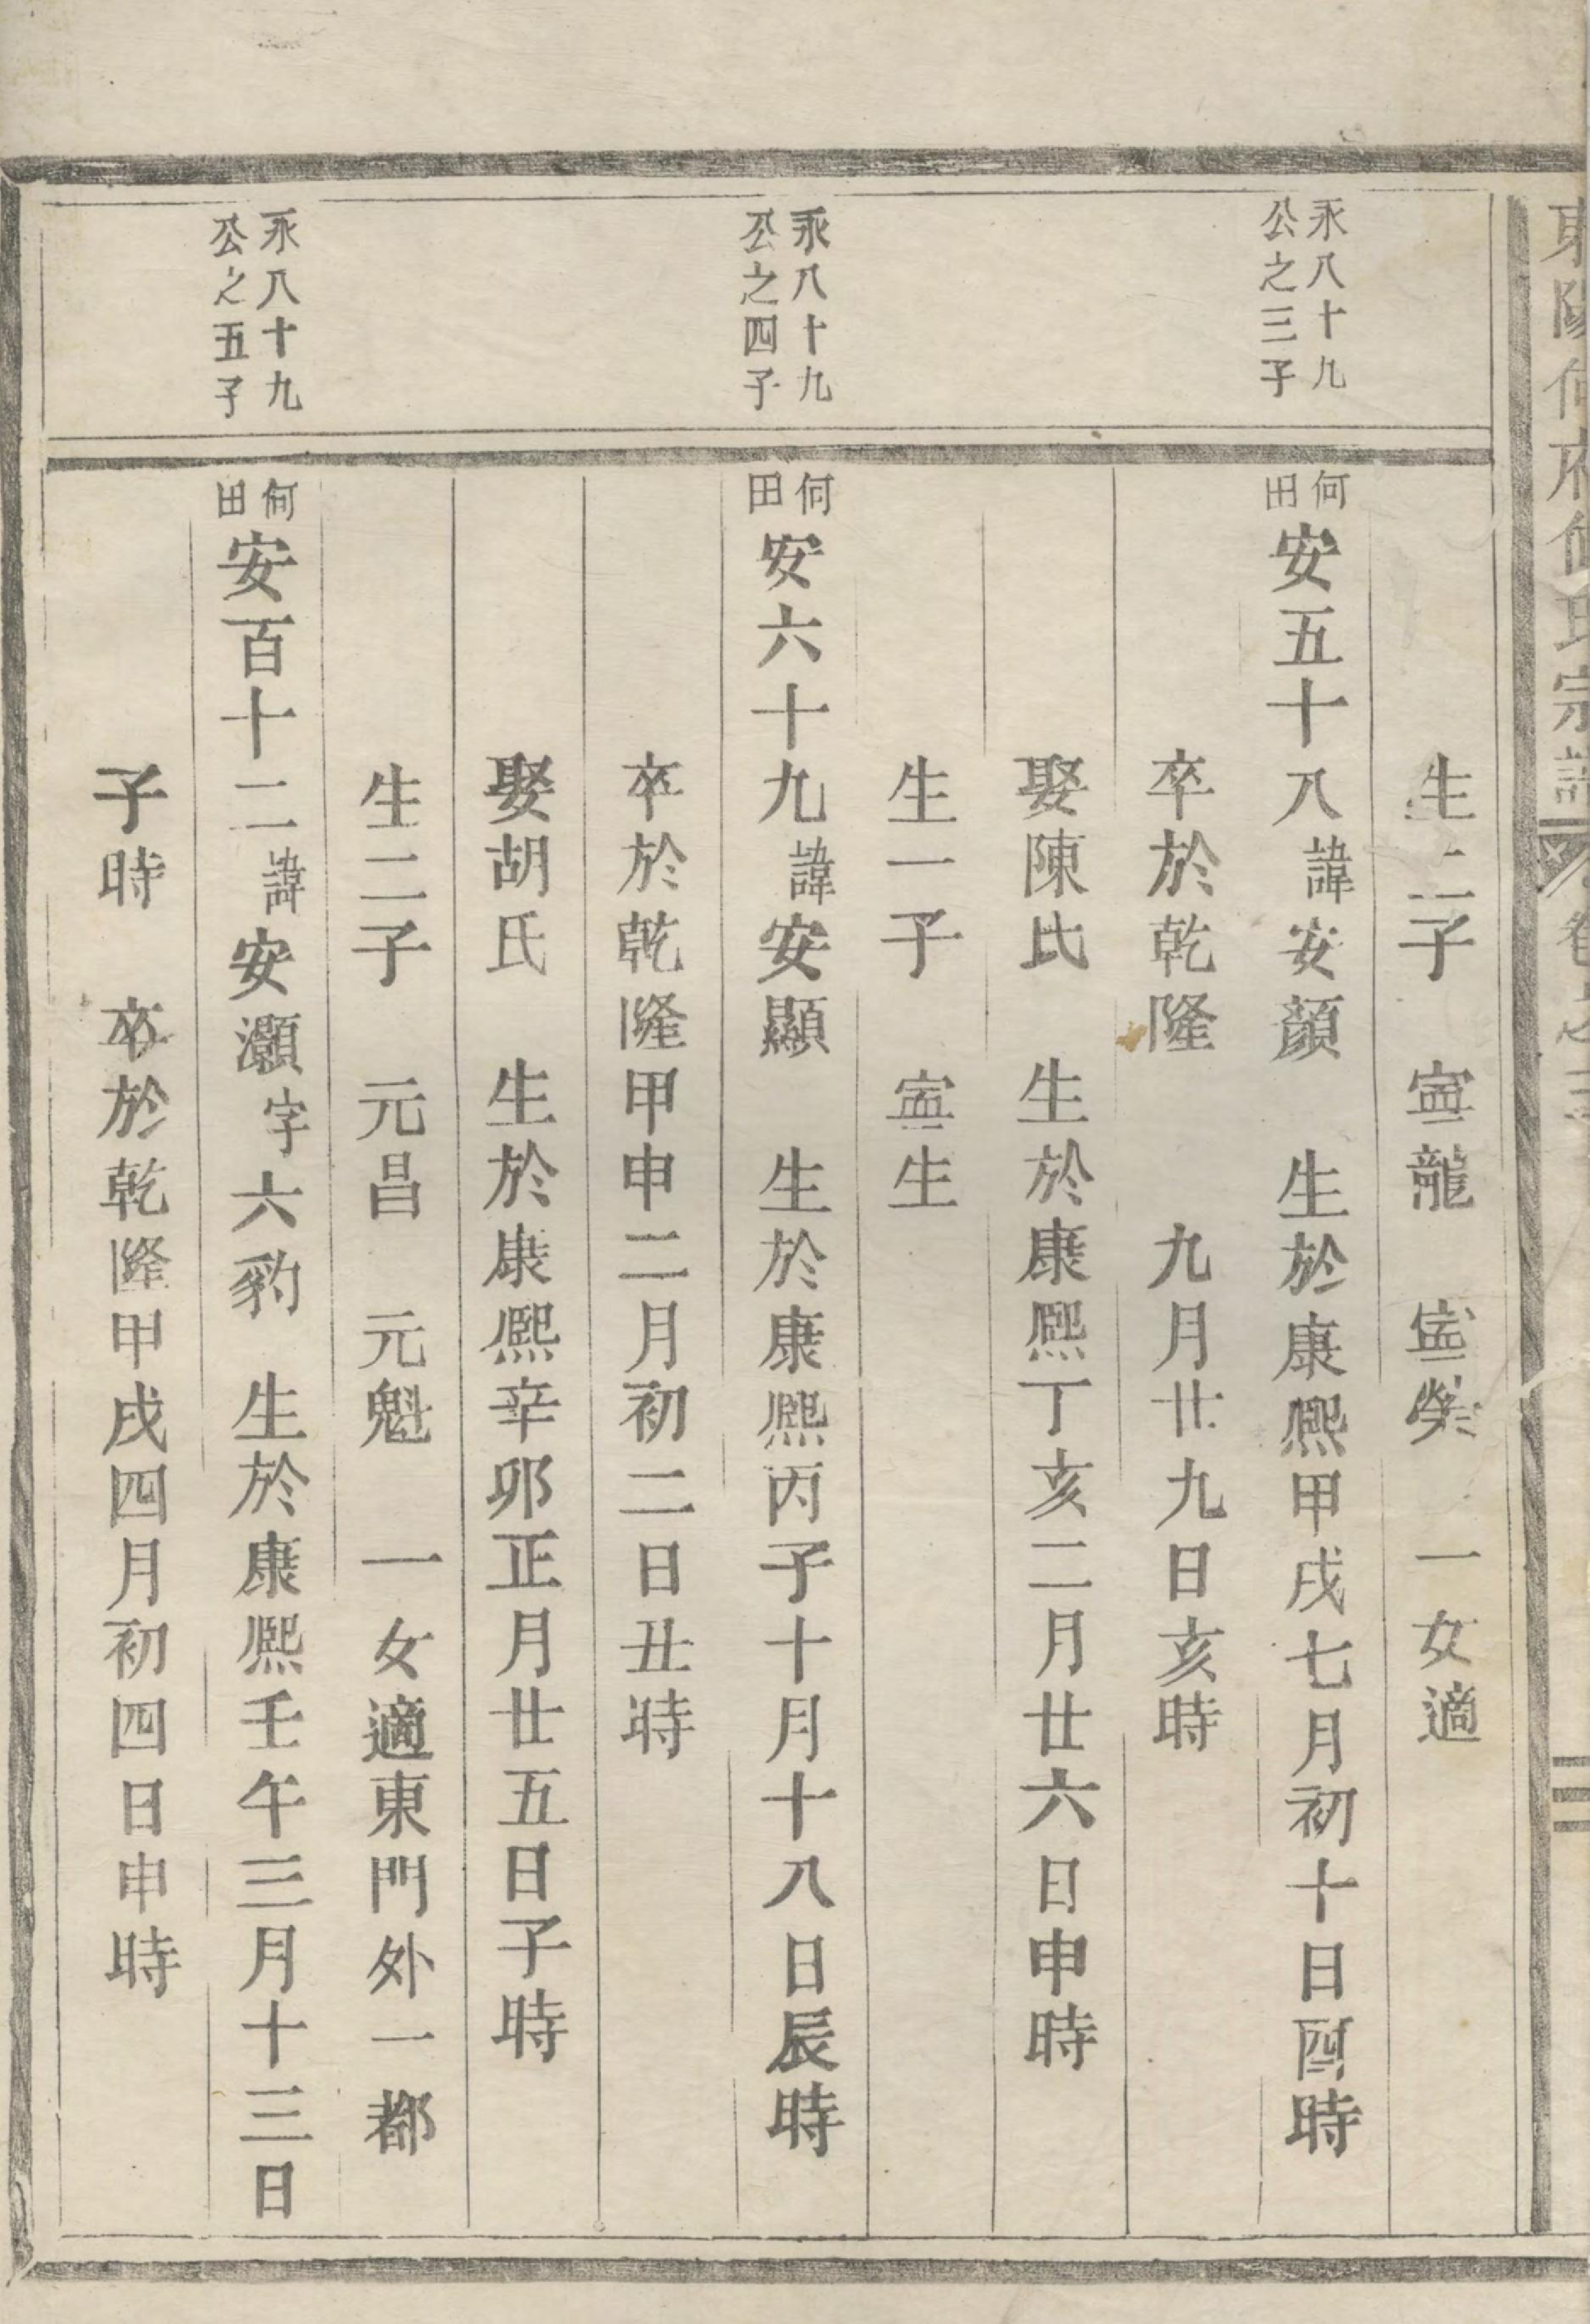 東陽何府何氏宗譜
生二子　寍龍　寍榮　一女適
永八十九
公之三子
何
田
安五十八諱安顔　生於康熙甲戌七月初十日酉時
卒於乾隆　九月廿九日亥時
娶陳氏　生於康熙丁亥二月廿六日申時
生一子　寍生
永八十九
公之四子
何
田
安六十九諱安顯　生於康熙丙子十月十八日辰時
卒於乾隆甲申二月初二日丑時
娶胡氏　生於康熙辛卯正月廿五日子時
生二子　元昌　元魁　一女適東門外一都
永八十九
公之五子
何
田
安百十二諱安灝字六豹　生於康熙壬午三月十三日
子時　卒於乾隆甲戌四月初四日申時